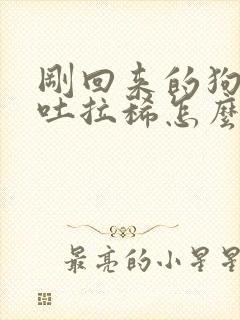 剛回來的狗
吐拉稀怎麼
最亮的小星星